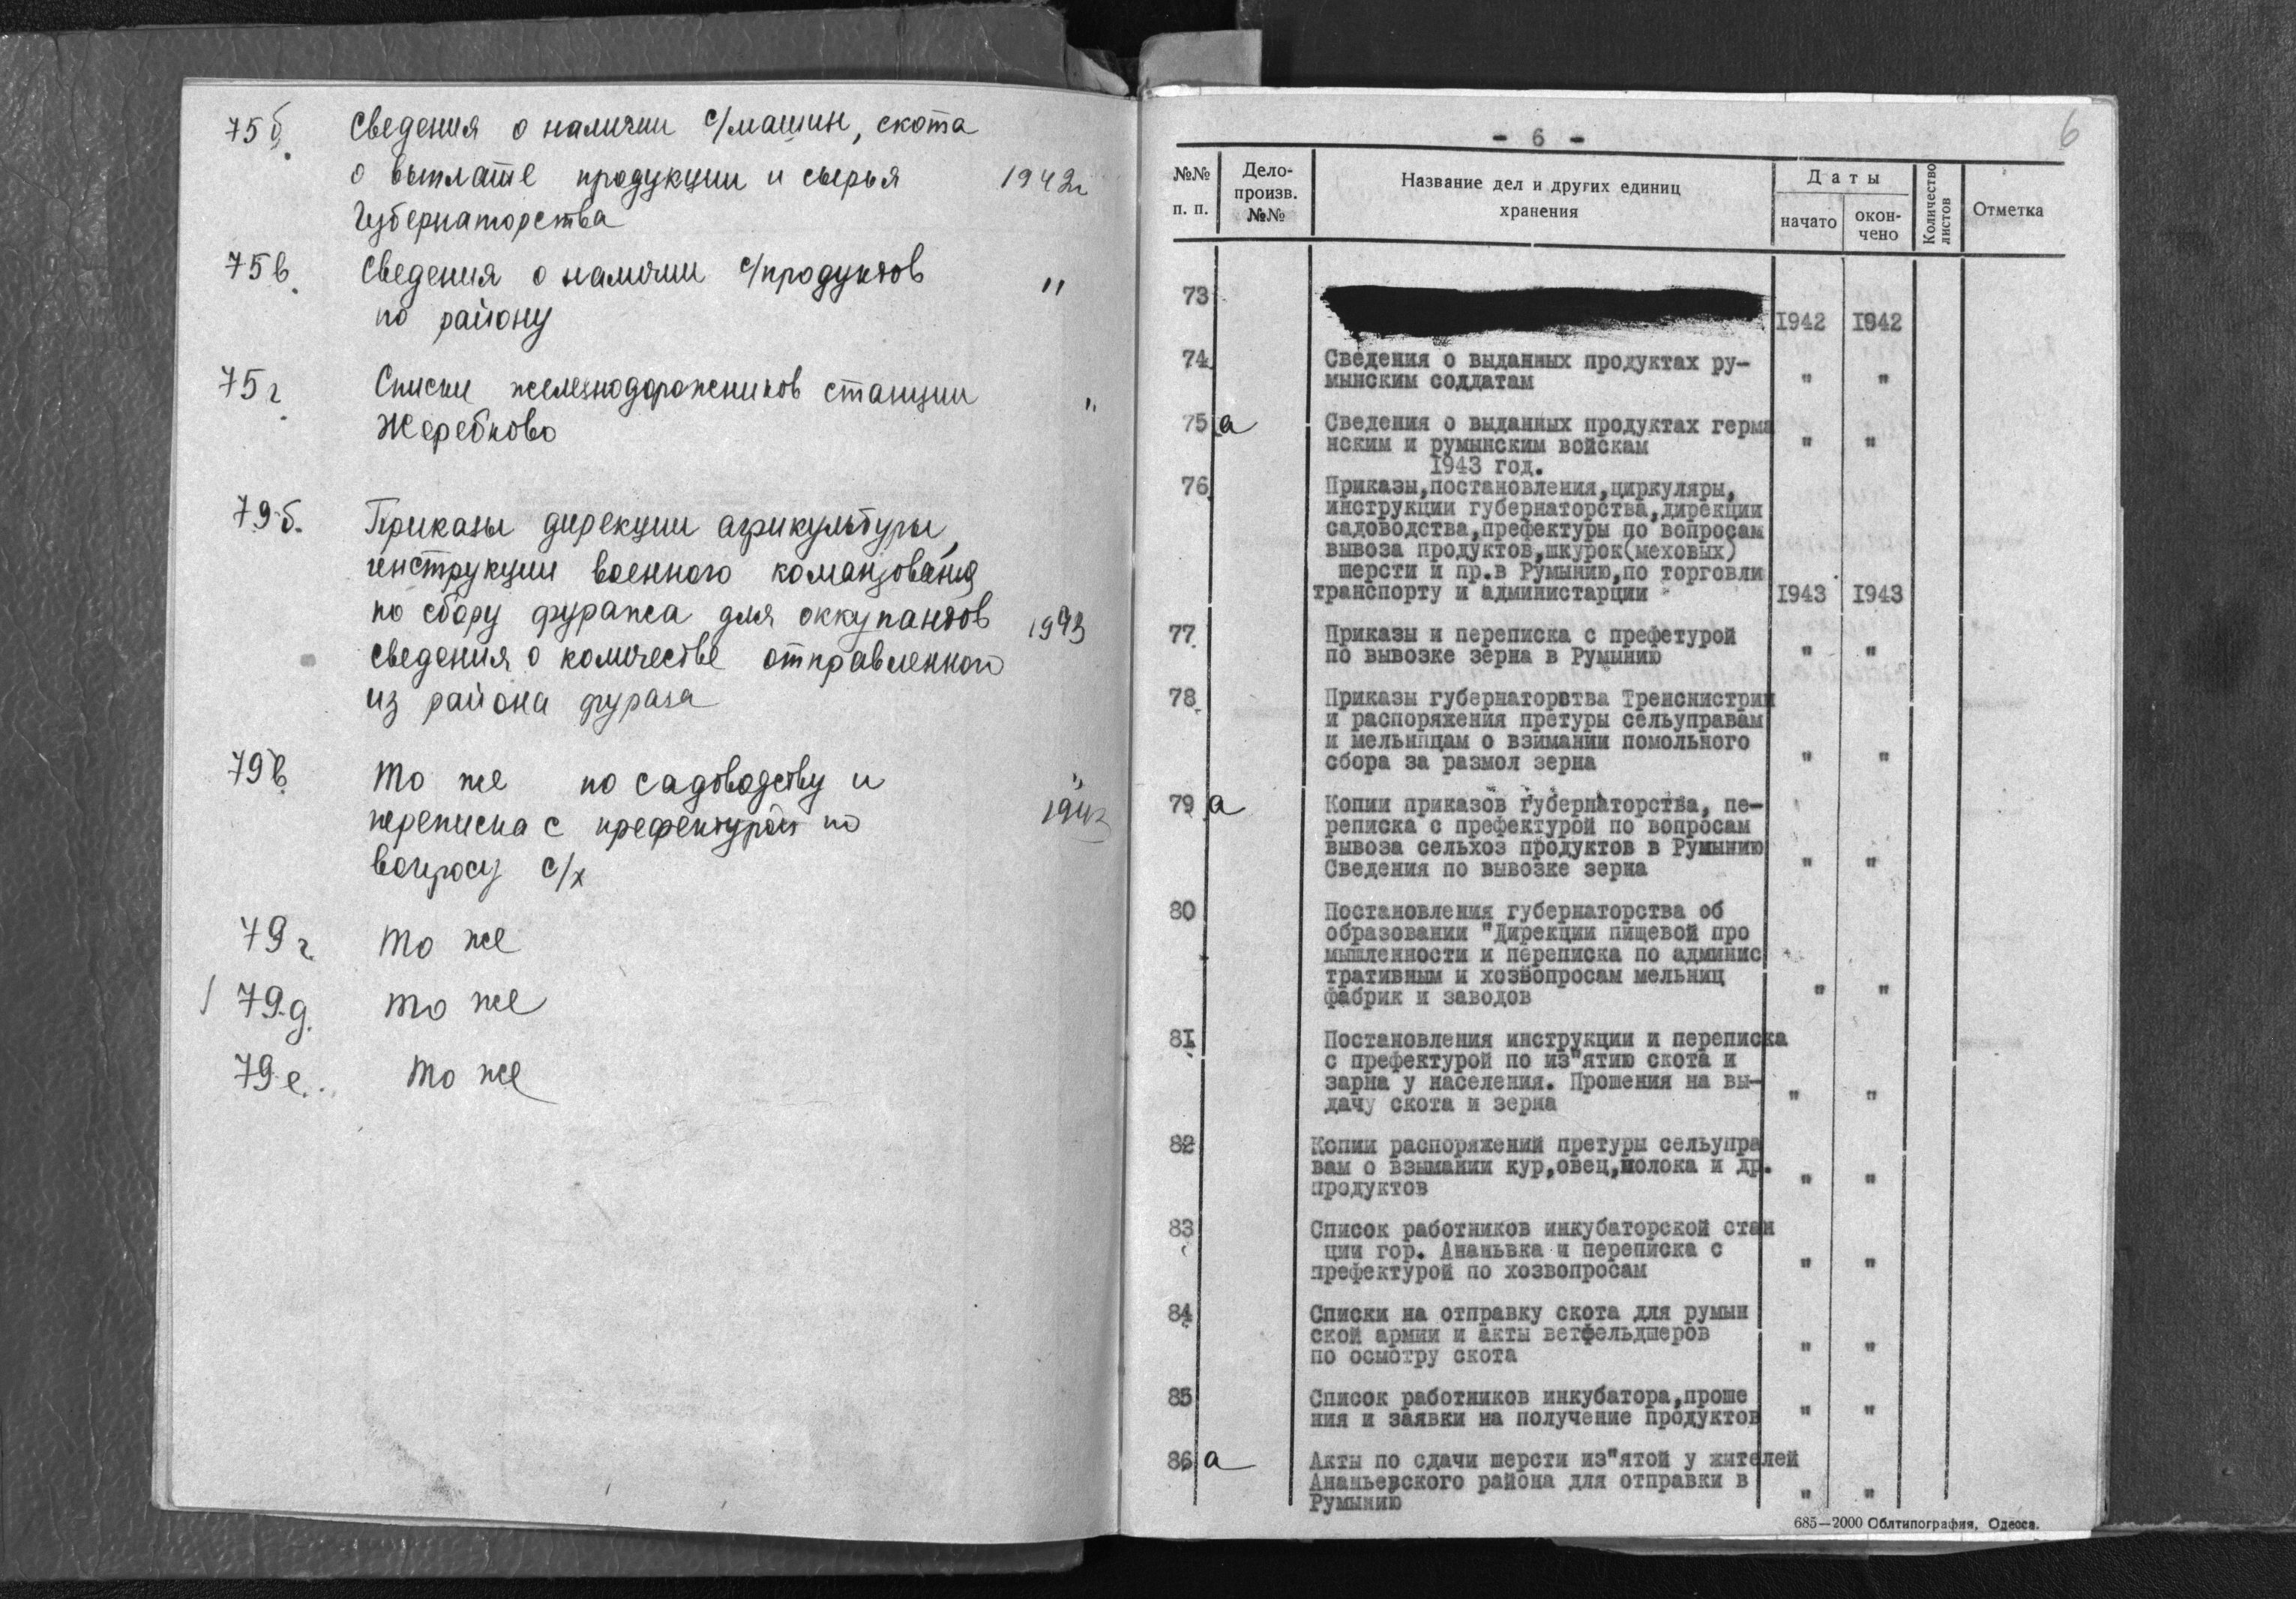 75б. Сведения о наличии с/машин, скота
о выплате продукции и сырья 1942г
Губернаторства
75в. Сведения о наличии с/продуктов "
по району
75г Списки железнодорожников станции "
Жеребково
79б. Приказы дирекции агрикультуры,
инструкции военного командования
по сбору фуража для оккупантов 1943
сведения о количестве отправленного
из района фуража
79в. То же по садоводству и "
переписка с префектурой по 1943
вопросу с/х
79г. То же
79д. То же
79е. То же
6
- 6 -
№№ п. п.
Дело-
произв.
№№
Название дел и других единиц
хранения
Даты
начато
окон-
чено
Количество
листов
Отметка
73 1942 1942
74 Сведения о выданных продуктах ру-
мынским солдатам " "
75 а Сведения о выданных продуктах герма
нским и румынским войскам " "
1943 год.
76 Приказы,постановления,циркуляры,
инструкции губернаторства,дирекции
садоводства,префектуры по вопросам
вывоза продуктов,шкурок(меховых)
шерсти и пр.в Румынию,по торговли
транспорту и администарции 1943 1943
77 Приказы и переписка с префетурой
по вывозке зерна в Румынию " "
78 Приказы губернаторства Тренснистрии
и распоряжения претуры сельуправам
и мельницам о взимании помольного
сбора за размол зерна " "
79 а Копии приказов губернаторства, пе-
реписка с префектурой по вопросам
вывоза сельхоз продуктов в Румынию
Сведения по вывозке зерна " "
80 Постановления губернаторства об
образовании "Дирекции пищевой про
мышленности и переписка по админис
тративным и хозвопросам мельниц
фабрик и заводов " "
81 Постановления инструкции и переписка
с префектурой по из"ятию скота и
зарна у населения. Прошения на вы-
дачу скота и зерна " "
82 Копии распоряжений претуры сельупра
вам о взымании кур,овец,молока и др.
продуктов " "
83 Список работников инкубаторской стан
ции гор. Ананьвка и переписка с
префектурой по хозвопросам " "
84 Списки на отправку скота для румын
ской армии и акты ветфельдшеров
по осмотру скота " "
85 Список работников инкубатора,проше
ния и заявки на получение продуктов " "
86 а Акты по сдачи шерсти из"ятой у жителей
Ананьевского района для отправки в
Румынию " "
685—2000 Облтипография, Одесса.